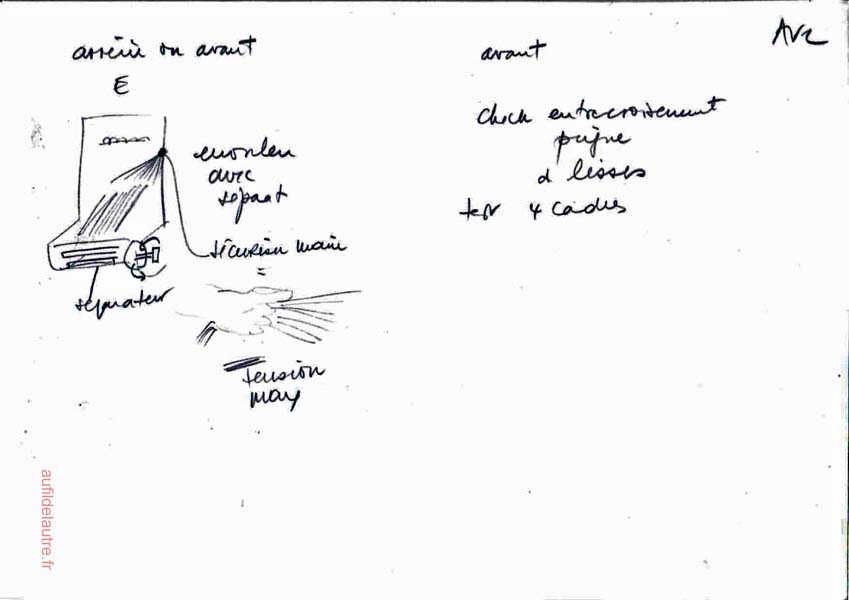 AV2
arrière ou avant
€
enrouleu
avec
séparat
sécurisé main
=
séparateur
tension
max
avant
check entrecroisement
peigne
d lisses
test 4 cadres
aufildelautre.fr